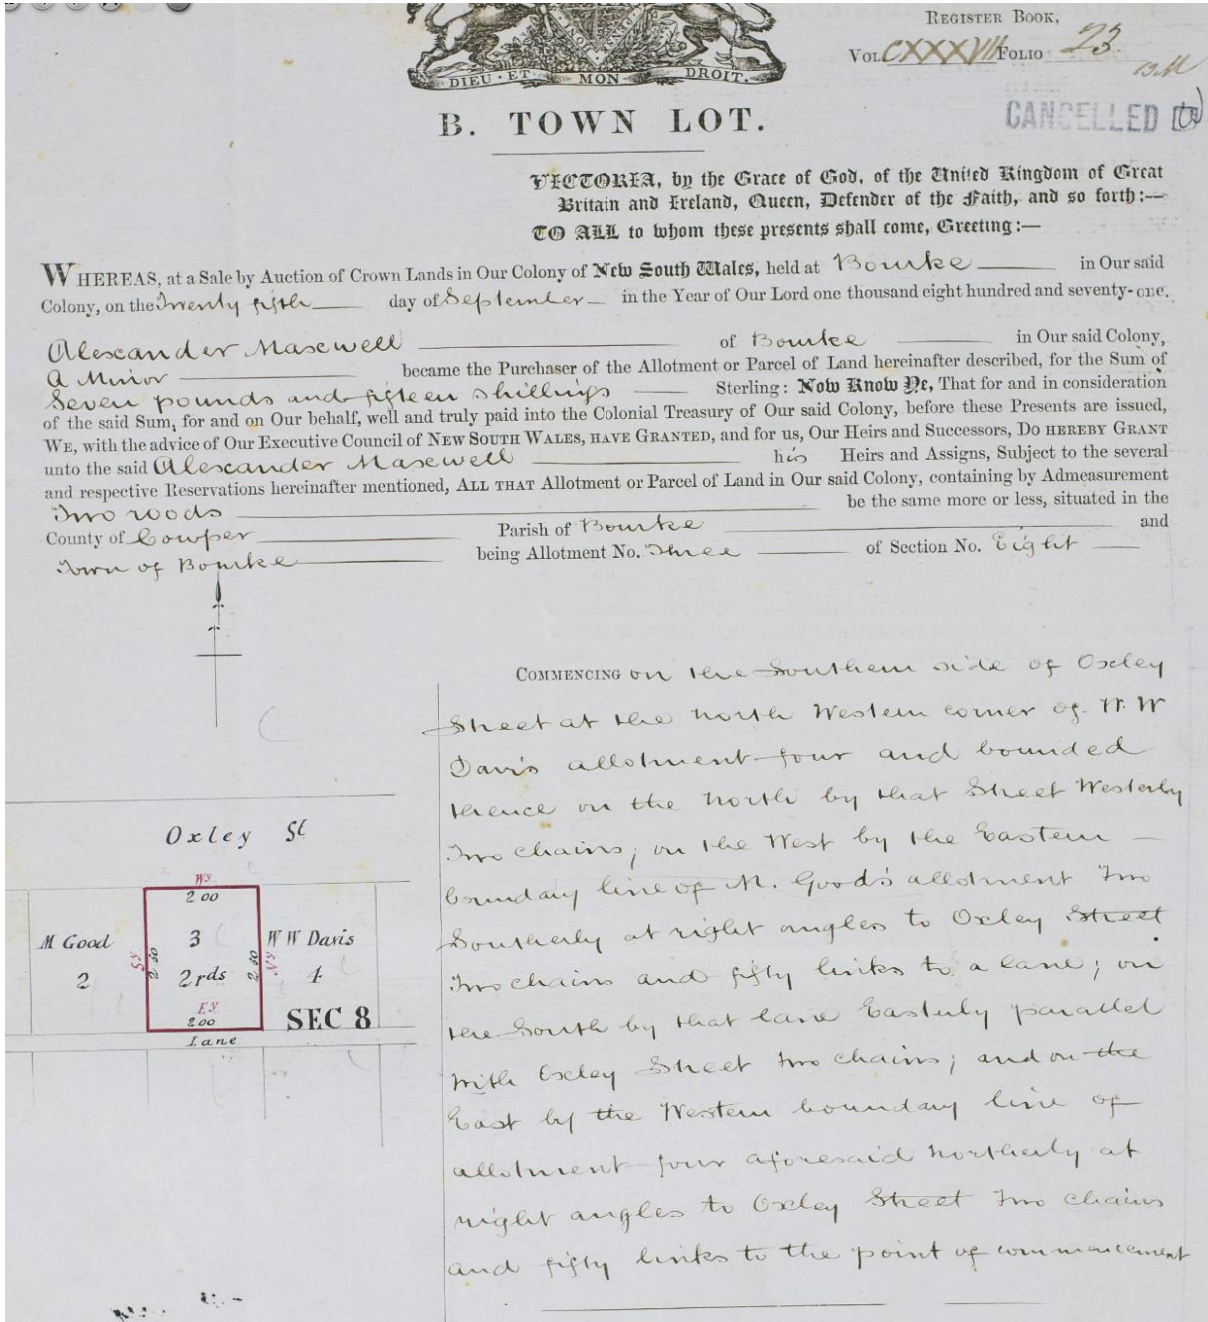 DIEU · ET MON DROIT.
REGISTER BOOK,
VOL. CXXXVII FOLIO 23
CANCELLED
B. TOWN LOT.
VICTORIA, by the Grace of God, of the United Kingdom of Great
Britain and Ireland, Queen, Defender of the Faith, and so forth:—
TO ALL to whom these presents shall come, Greeting:—
WHEREAS, at a Sale by Auction of Crown Lands in Our Colony of New South Wales, held at Bourke in Our said
Colony, on the Twenty fifth day of September in the Year of Our Lord one thousand eight hundred and seventy-one,
Alexander Maxwell of Bourke in Our said Colony,
A Minor became the Purchaser of the Allotment or Parcel of Land hereinafter described, for the Sum of
Seven pounds and fifteen shillings Sterling: Now Know Ye, That for and in consideration
of the said Sum, for and on Our behalf, well and truly paid into the Colonial Treasury of Our said Colony, before these Presents are issued,
WE, with the advice of Our Executive Council of NEW SOUTH WALES, HAVE GRANTED, and for us, Our Heirs and Successors, DO HEREBY GRANT
unto the said Alexander Maxwell his Heirs and Assigns, Subject to the several
and respective Reservations hereinafter mentioned, ALL THAT Allotment or Parcel of Land in Our said Colony, containing by Admeasurement
Two roods be the same more or less, situated in the
County of Cowper Parish of Bourke and
Town of Bourke being Allotment No. Three of Section No. Eight
COMMENCING on the Southern side of Oxley
Street at the north Western corner of W. W
Davis allotment four and bounded
thence on the north by that Street Westerly
Two chains; on the West by the Eastern
boundary line of M. Good's allotment Two
Southerly at right angles to Oxley Street
Two chains and fifty links to a lane; on
the South by that lane Easterly parallel
with Oxley Street two chains; and on the
East by the Western boundary line of
allotment four aforesaid northerly at
right angles to Oxley Street Two chains
and fifty links to the point of commencement
Oxley St
Wy.
2 00
M Good
2
Sy
2.50
3
2 rds
2.50
Ny.
W W Davis
4
Ey.
2.00
SEC 8
Lane